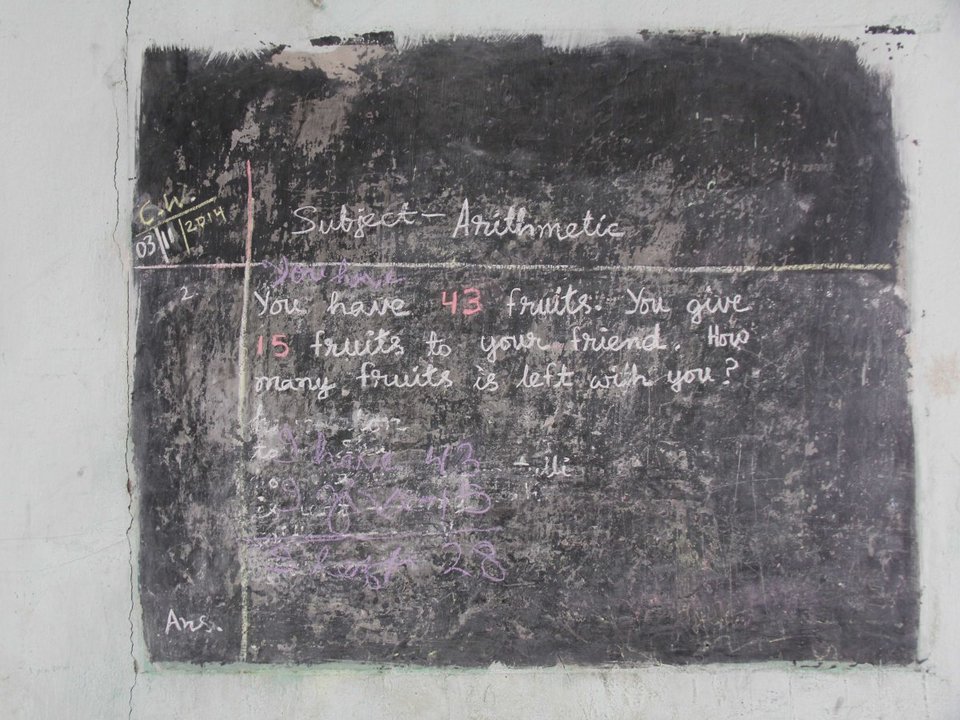 C.W.
03/11/2014
Subject - Arithmetic
You have
2
You have 43 fruits. You give
15 fruits to your friend. How
many fruits is left with you?
to
I have 43
I
is
left 28
Ans.